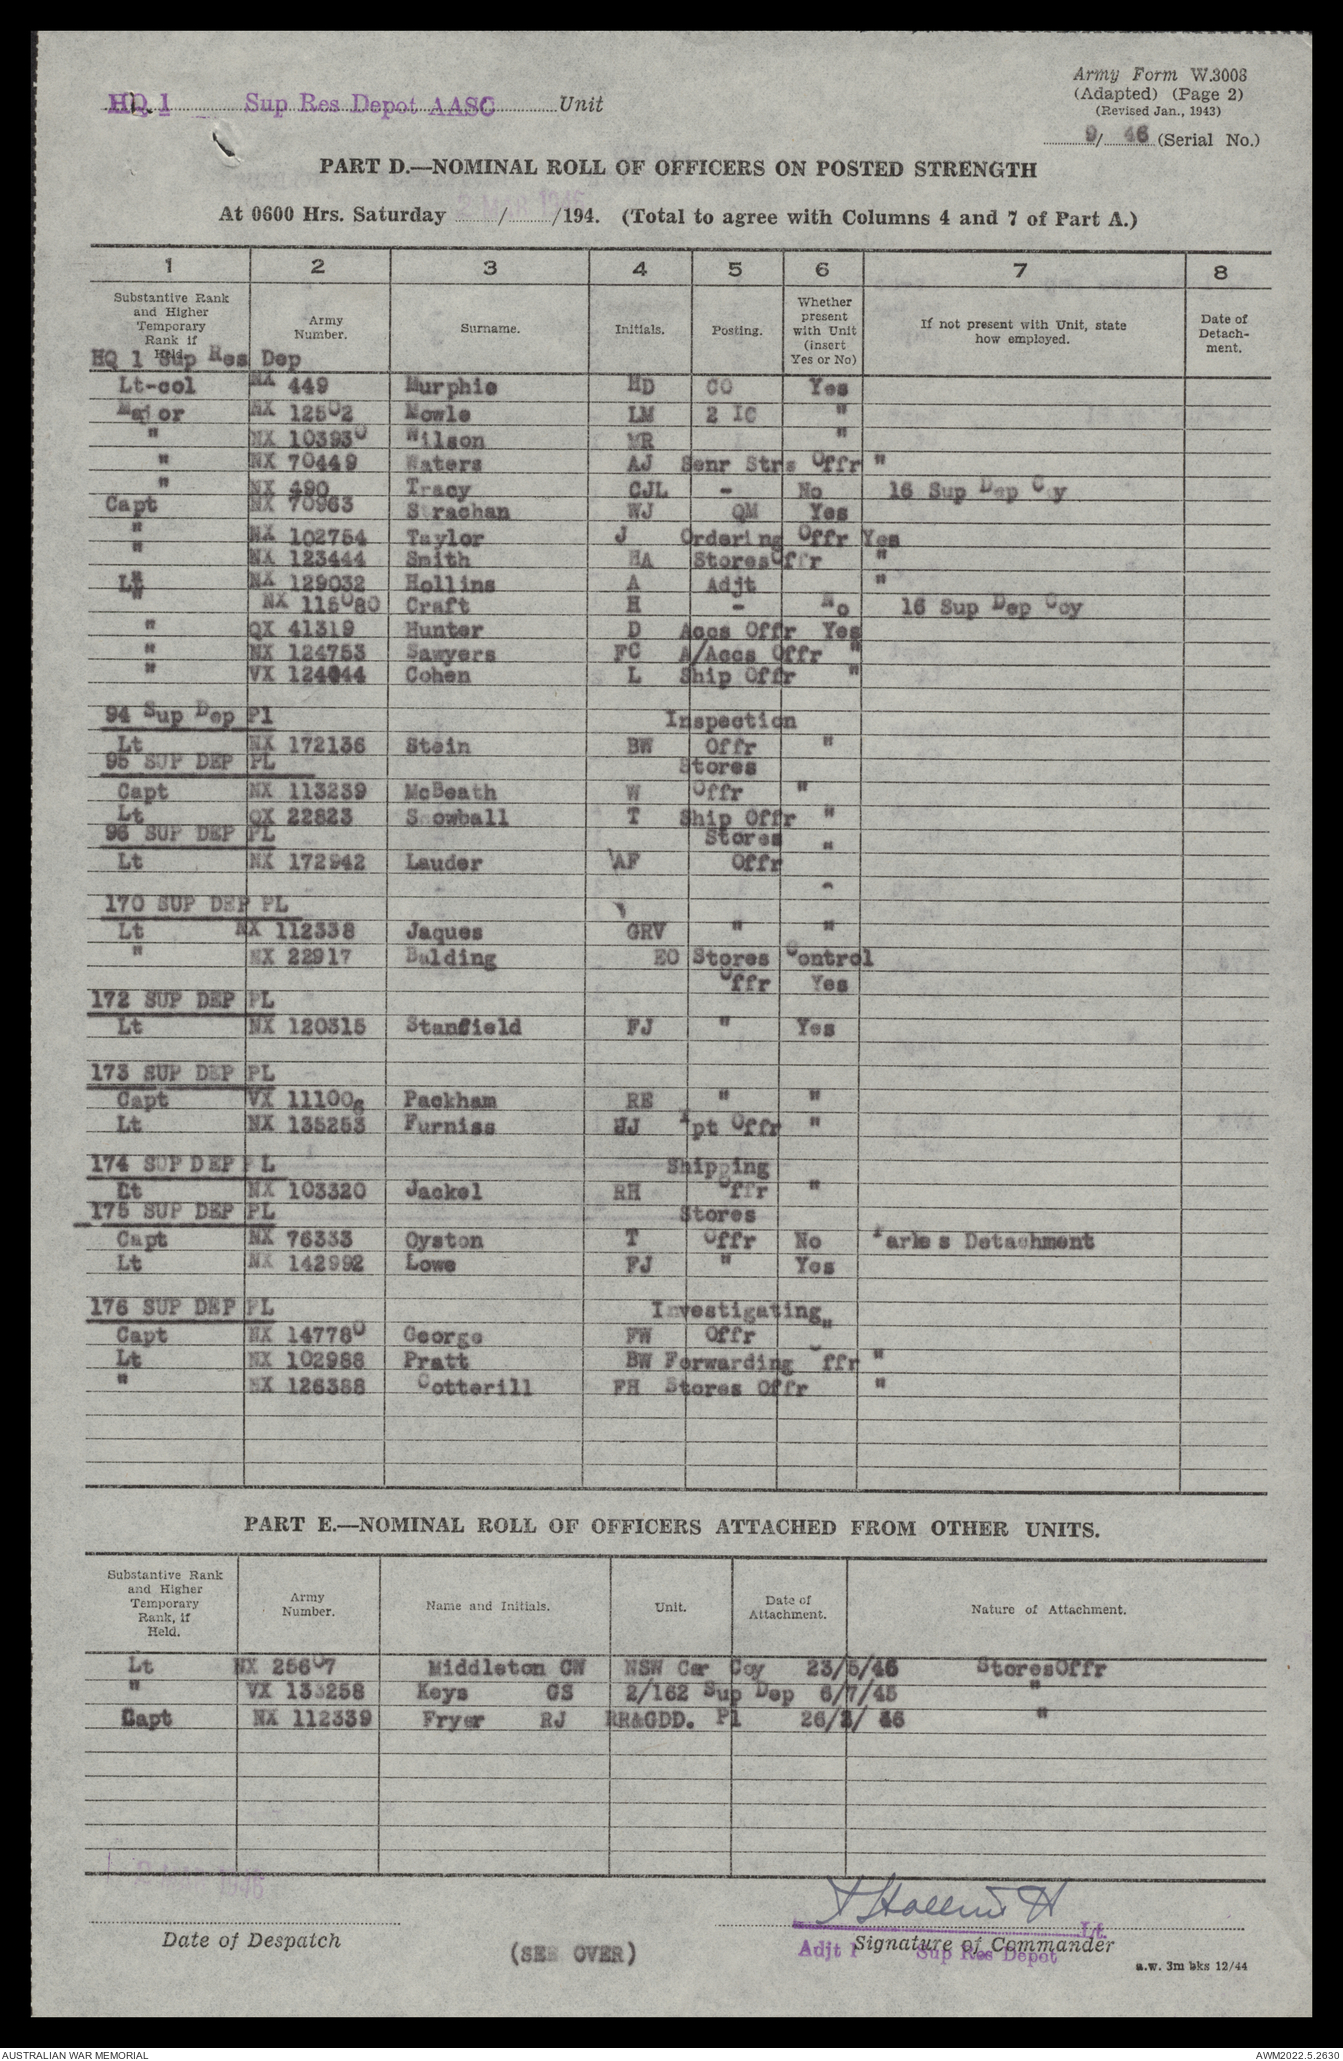 HQ 1 Sup Res Depot AASC Unit
Army Form W.3008
(Adapted) (Page 2)
(Revised Jan., 1943)
9/ 46 (Serial No.)
PART D.—NOMINAL ROLL OF OFFICERS ON POSTED STRENGTH
At 0600 Hrs. Saturday / /194. (Total to agree with Columns 4 and 7 of Part A.)
1 2 3 4 5 6 7 8
Substantive Rank and Higher Temporary Rank if Held. Army Number. Surname. Initials. Posting. Whether present with Unit (insert Yes or No) If not present with Unit, state how employed. Date of Detach- ment.
HQ 1 Sup Res Dep
Lt-col NX 449 Murphie HD CO Yes
Major NX 12502 Mowle LM 2 IC "
" NX 103930 Wilson MR "
" NX 70449 Waters AJ Senr Strs Offr "
" NX 490 Tracy CJL - No 16 Sup Dep Coy
Capt NX 70963 Strachan WJ QM Yes
" NX 102754 Taylor J Ordering Offr Yes
" NX 123444 Smith HA StoresOffr "
Lt NX 129032 Hollins A Adjt "
" NX 115080 Craft H - No 16 Sup Dep Coy
" QX 41319 Hunter D Accs Offr Yes
" NX 124753 Sawyers FC A/Accs Offr "
" VX 124044 Cohen L Ship Offr "
94 Sup Dep Pl Inspection
Lt NX 172136 Stein BW Offr "
95 SUP DEP PL Stores
Capt NX 113239 McBeath W Offr "
Lt QX 22823 Snowball T Ship Offr "
96 SUP DEP PL Stores "
Lt NX 172942 Lauder AF Offr
170 SUP DEP PL
Lt NX 112338 Jaques GRV " "
" NX 22917 Balding EO Stores Control
Offr Yes
172 SUP DEP PL
Lt NX 120315 Stanfield FJ " Yes
173 SUP DEP PL
Capt VX 111008 Packham RE " "
Lt NX 135253 Furniss HJ pt Offr "
174 SUP DEP PL Shipping
Lt NX 103320 Jackel RH Offr "
175 SUP DEP PL Stores
Capt NX 76333 Oyston T Offr No arles Detachment
Lt NX 142992 Lowe FJ " Yes
176 SUP DEP PL Investigating "
Capt NX 147780 George FW Offr
Lt NX 102988 Pratt BW Forwarding Offr "
" NX 126388 Cotterill FH Stores Offr "
PART E.—NOMINAL ROLL OF OFFICERS ATTACHED FROM OTHER UNITS.
Substantive Rank and Higher Temporary Rank, if Held. Army Number. Name and Initials. Unit. Date of Attachment. Nature of Attachment.
Lt NX 25607 Middleton CW NSW Car Coy 23/5/46 StoresOffr
" VX 133258 Keys GS 2/162 Sup Dep 6/7/45 "
Capt NX 112339 Fryer RJ RR&GDD. Pl 26/ / 46 "
1946
Date of Despatch
(SEE OVER)
Lt.
Signature of Commander
Adjt 1 Sup Res Depot
a.w. 3m bks 12/44
AUSTRALIAN WAR MEMORIAL
AWM2022.5.2630